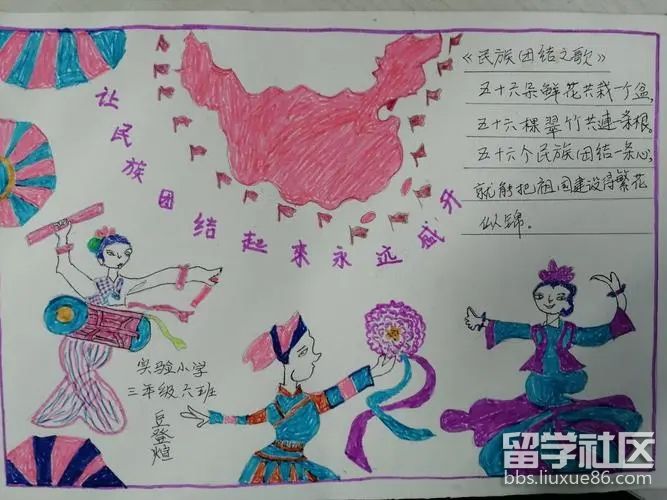 让民族团结起来永远盛开
《民族团结之歌》
五十六朵鲜花共栽一个盆,
五十六棵翠竹共连一条根。
五十六个民族团结一条心,
就能把祖国建设得繁花
似锦。
实验小学
三年级六班
豆登煊
留学社区
bbs.liuxue86.com